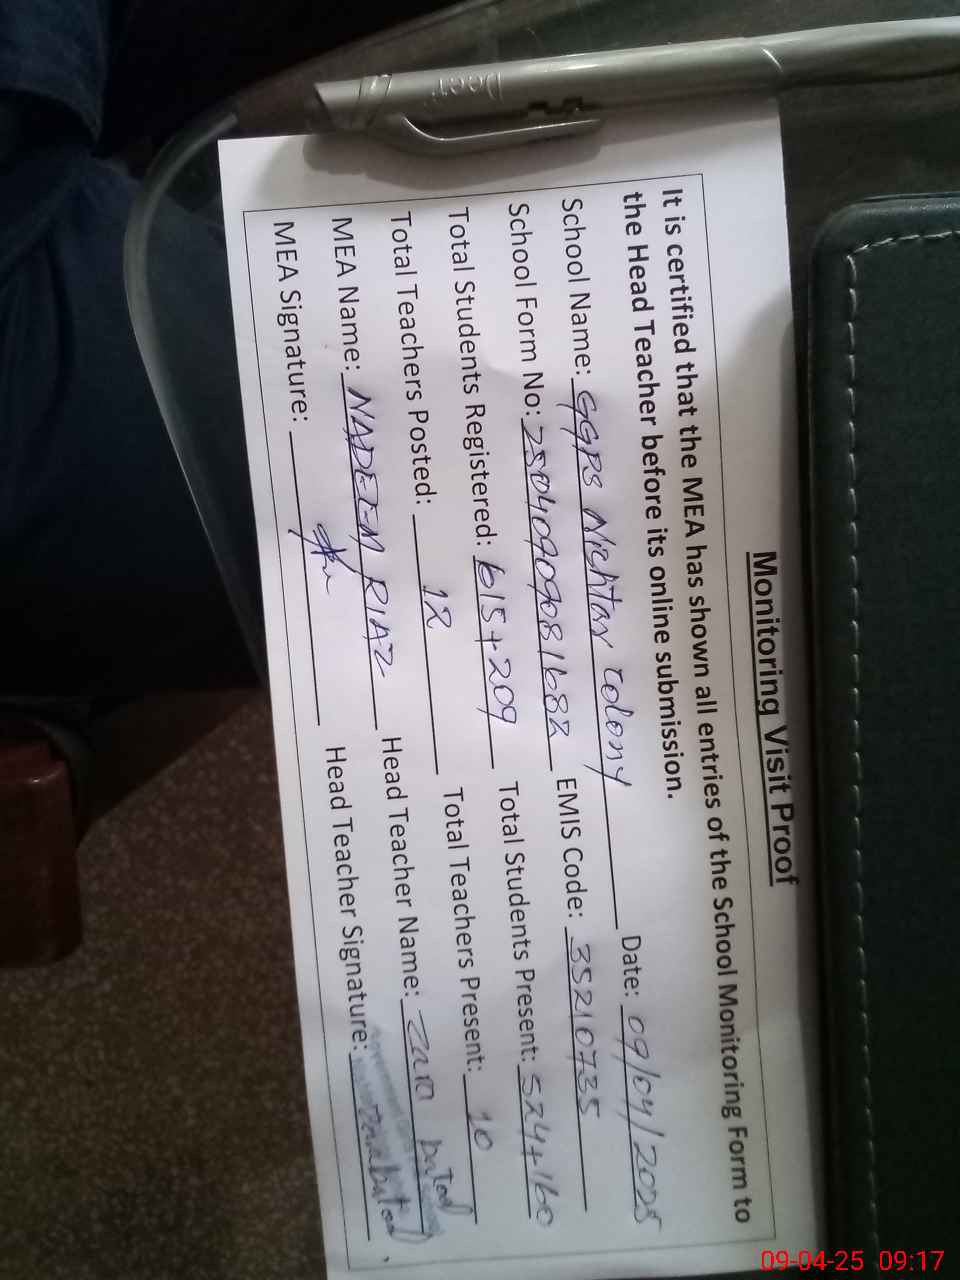 Monitoring Visit Proof
It is certified that the MEA has shown all entries of the School Monitoring Form to
the Head Teacher before its online submission.
School Name: GGPS Nishtar Colony Date: 09/04/2025
School Form No: 25040909081682 EMIS Code: 35210735
Total Students Registered: 615+209 Total Students Present: 524+160
Total Teachers Posted: 12 Total Teachers Present: 10
MEA Name: NADEEM RIAZ Head Teacher Name: Zara
MEA Signature: Head Teacher Signature:
Deer
09-04-25 09:17